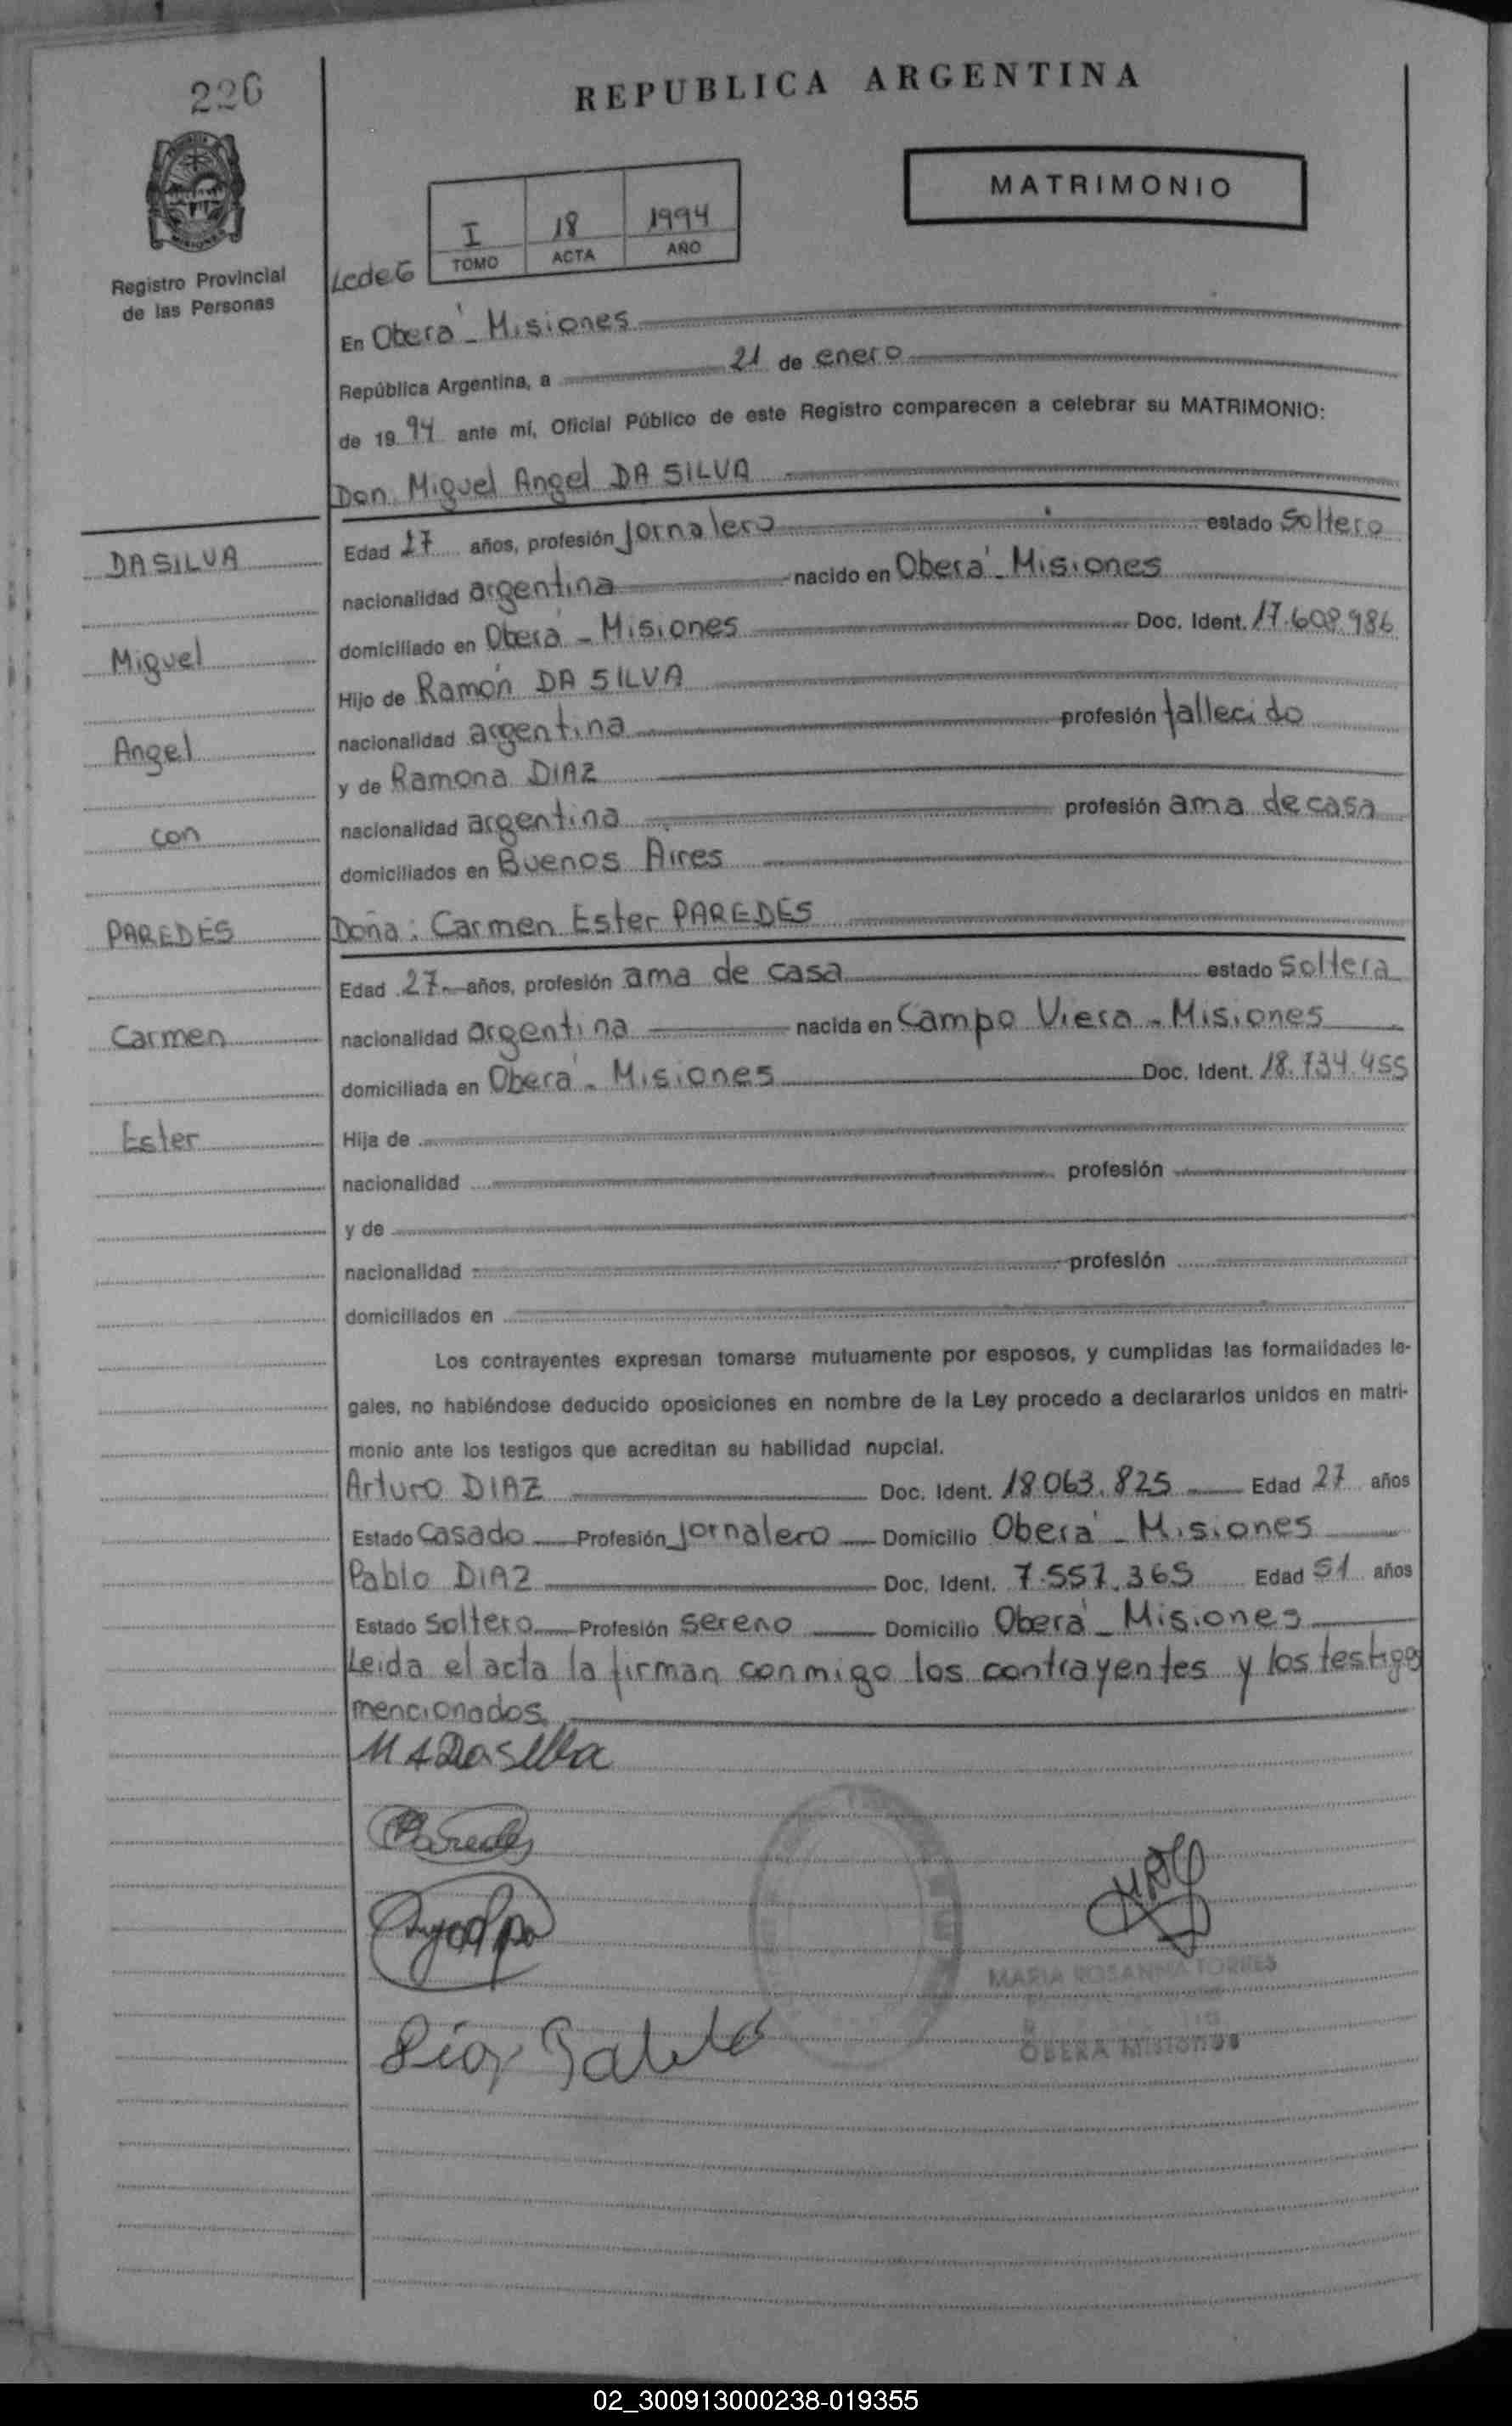 226
REPUBLICA ARGENTINA
MATRIMONIO
MISIONES
Registro Provincial
de las Personas
I 18 1994
TOMO ACTA AÑO
En Oberá - Misiones
República Argentina, a 21 de enero
de 1994 ante mí, Oficial Público de este Registro comparecen a celebrar su MATRIMONIO:
Don Miguel Angel DA SILVA
DA SILVA
Edad 27 años, profesión jornalero estado soltero
nacionalidad argentina nacido en Oberá - Misiones
domiciliado en Oberá - Misiones Doc. Ident. 17.608.986
Miguel
Hijo de Ramón DA SILVA
nacionalidad argentina profesión fallecido
Angel
y de Ramona DIAZ
nacionalidad argentina profesión ama de casa
con
domiciliados en Buenos Aires
PAREDES
Doña: Carmen Ester PAREDES
Edad 27 años, profesión ama de casa estado soltera
Carmen
nacionalidad argentina nacida en Campo Viera - Misiones
domiciliada en Oberá - Misiones Doc. Ident. 18.734.455
Ester
Hija de
nacionalidad profesión
y de
nacionalidad profesión
domiciliados en
Los contrayentes expresan tomarse mutuamente por esposos, y cumplidas las formalidades le-
gales, no habiéndose deducido oposiciones en nombre de la Ley procedo a declararlos unidos en matri-
monio ante los testigos que acreditan su habilidad nupcial.
Arturo DIAZ Doc. Ident. 18063.825 Edad 27 años
Estado casado Profesión jornalero Domicilio Oberá - Misiones
Pablo DIAZ Doc. Ident. 7.557.365 Edad 51 años
Estado soltero Profesión sereno Domicilio Oberá - Misiones
Leida el acta la firman conmigo los contrayentes y los testigos
mencionados.
M A Dasilva
Paredes
MARIA ROSANNA TORRES
OBERA Misiones
02_300913000238-019355